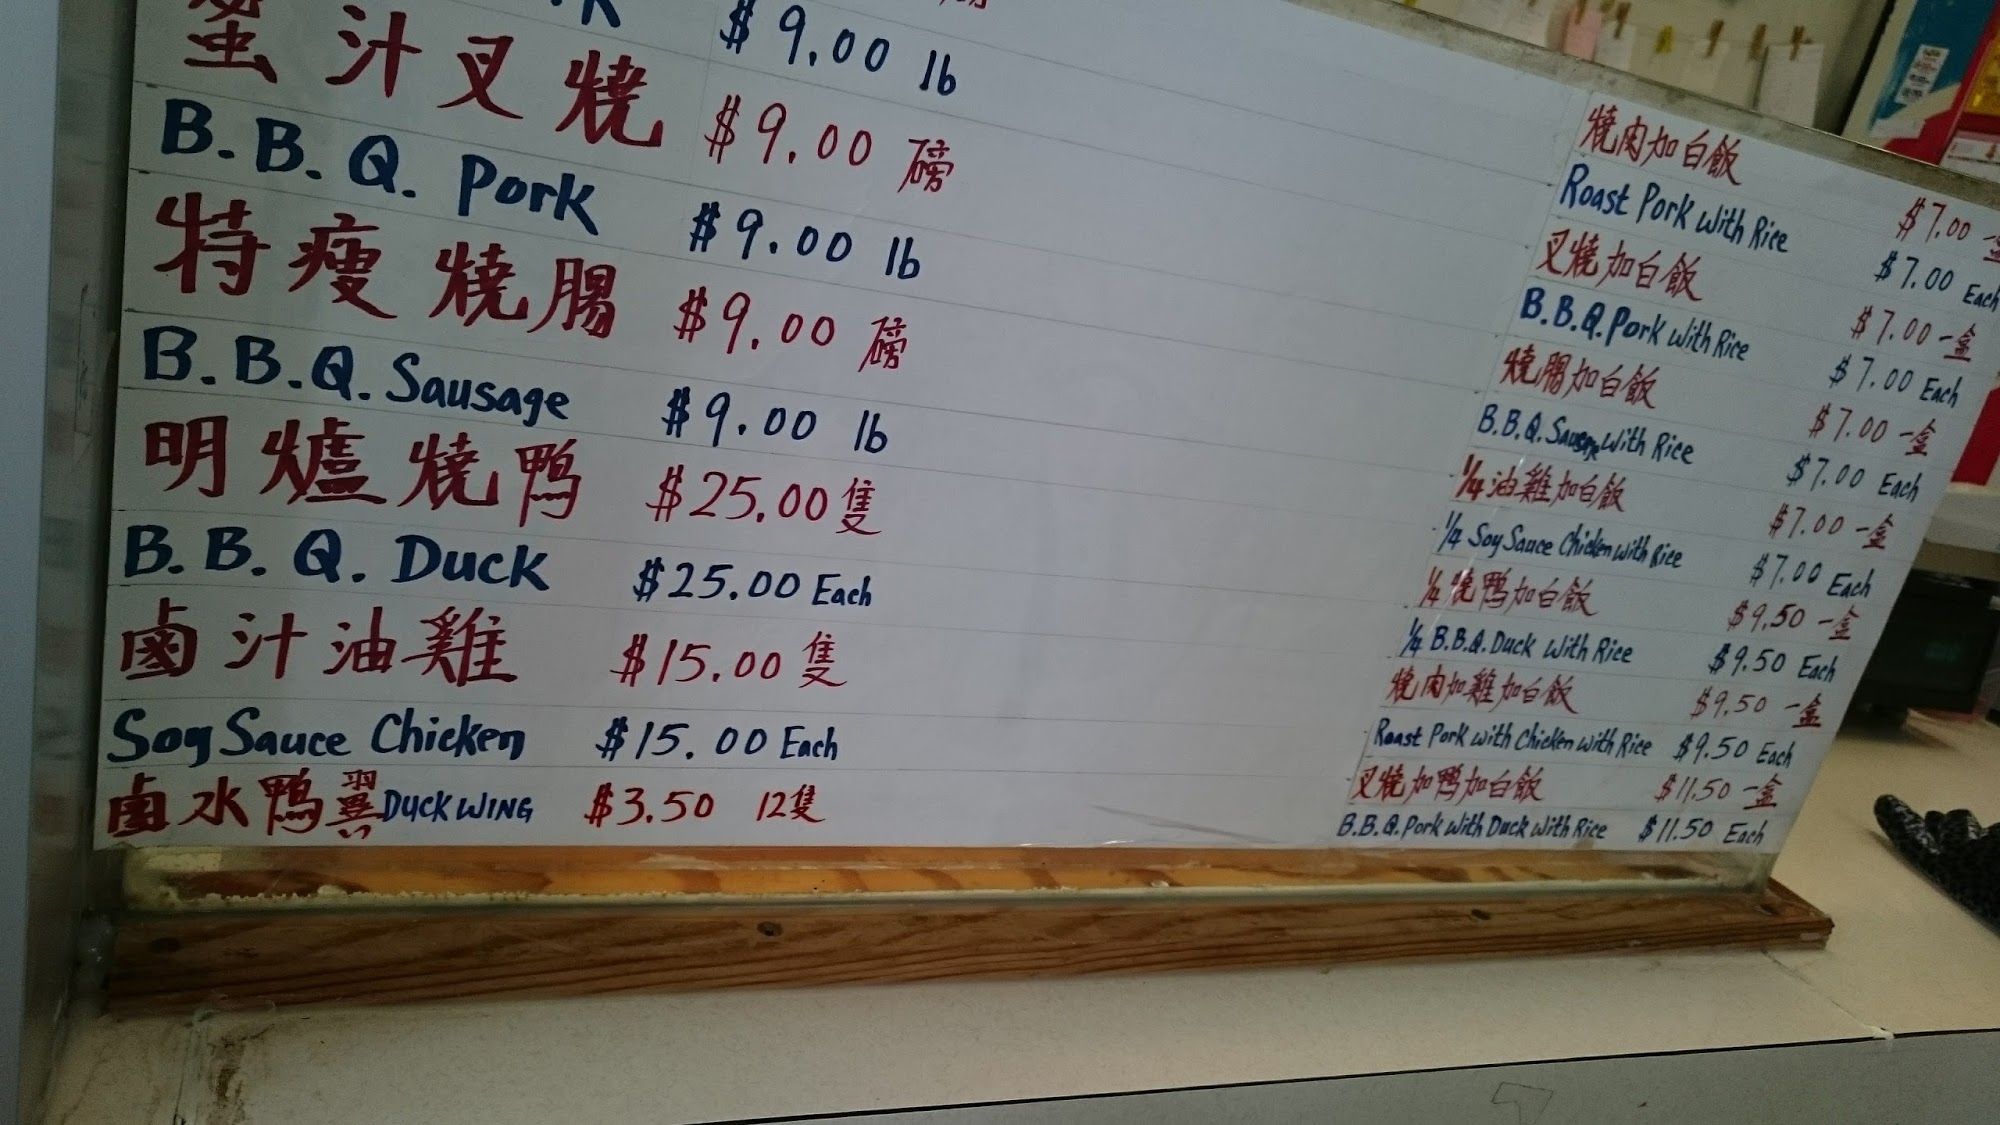 $9.00 lb
蜜汁叉燒 $9.00 磅
B.B.Q. Pork $9.00 lb
特瘦燒腸 $9.00 磅
B.B.Q. Sausage $9.00 lb
明爐燒鴨 $25.00 隻
B.B.Q. Duck $25.00 Each
鹵汁油雞 $15.00 隻
Soy Sauce Chicken $15.00 Each
鹵水鴨翼 DUCK WING $3.50 12隻
燒肉加白飯 $7.00 一盒
Roast Pork With Rice $7.00 Each
叉燒加白飯 $7.00 一盒
B.B.Q. Pork with Rice $7.00 Each
燒腸加白飯 $7.00 一盒
B.B.Q. Sausage with Rice $7.00 Each
1/4 油雞加白飯 $7.00 一盒
1/4 Soy Sauce Chicken with Rice $7.00 Each
1/4 燒鴨加白飯 $9.50 一盒
1/4 B.B.Q. Duck with Rice $9.50 Each
燒肉加雞加白飯 $9.50 一盒
Roast Pork with Chicken with Rice $9.50 Each
叉燒加鴨加白飯 $11.50 一盒
B.B.Q. Pork with Duck with Rice $11.50 Each